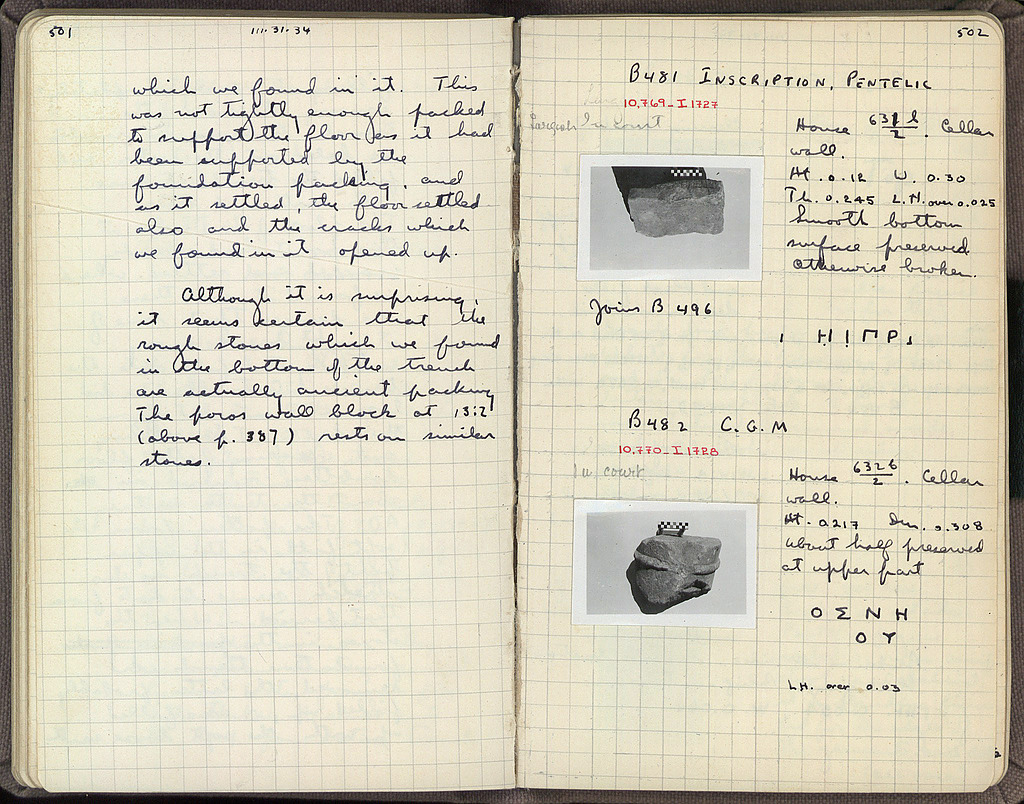 501
III·31·34
which we found in it. This
was not tightly enough packed
to support the floor as it had
been supported by the
foundation packing, and
as it settled, the floor settled
also and the cracks which
we found in it opened up.
Although it is surprising,
it seems certain that the
rough stones which we found
in the bottom of the trench
are actually ancient packing
The poros wall block at 13:2
(above p. 387) rests on similar
stones.
502
B481 INSCRIPTION, PENTELIC
10,769-I 1727
In court
House 631 /2. Cellar
wall.
Ht. 0.12 W. 0.30
Th. 0.245 L.H. over 0.025
Smooth bottom
surface preserved
otherwise broken.
Joins B 496
Η Ι Π Ρ
B482 C.G.M
10,770-I 1728
In court
House 632b/2. Cellar
wall.
Ht. 0.217 Dm. 0.308
About half preserved
at upper part
Ο Σ Ν Η
Ο Υ
L.H. over 0.03